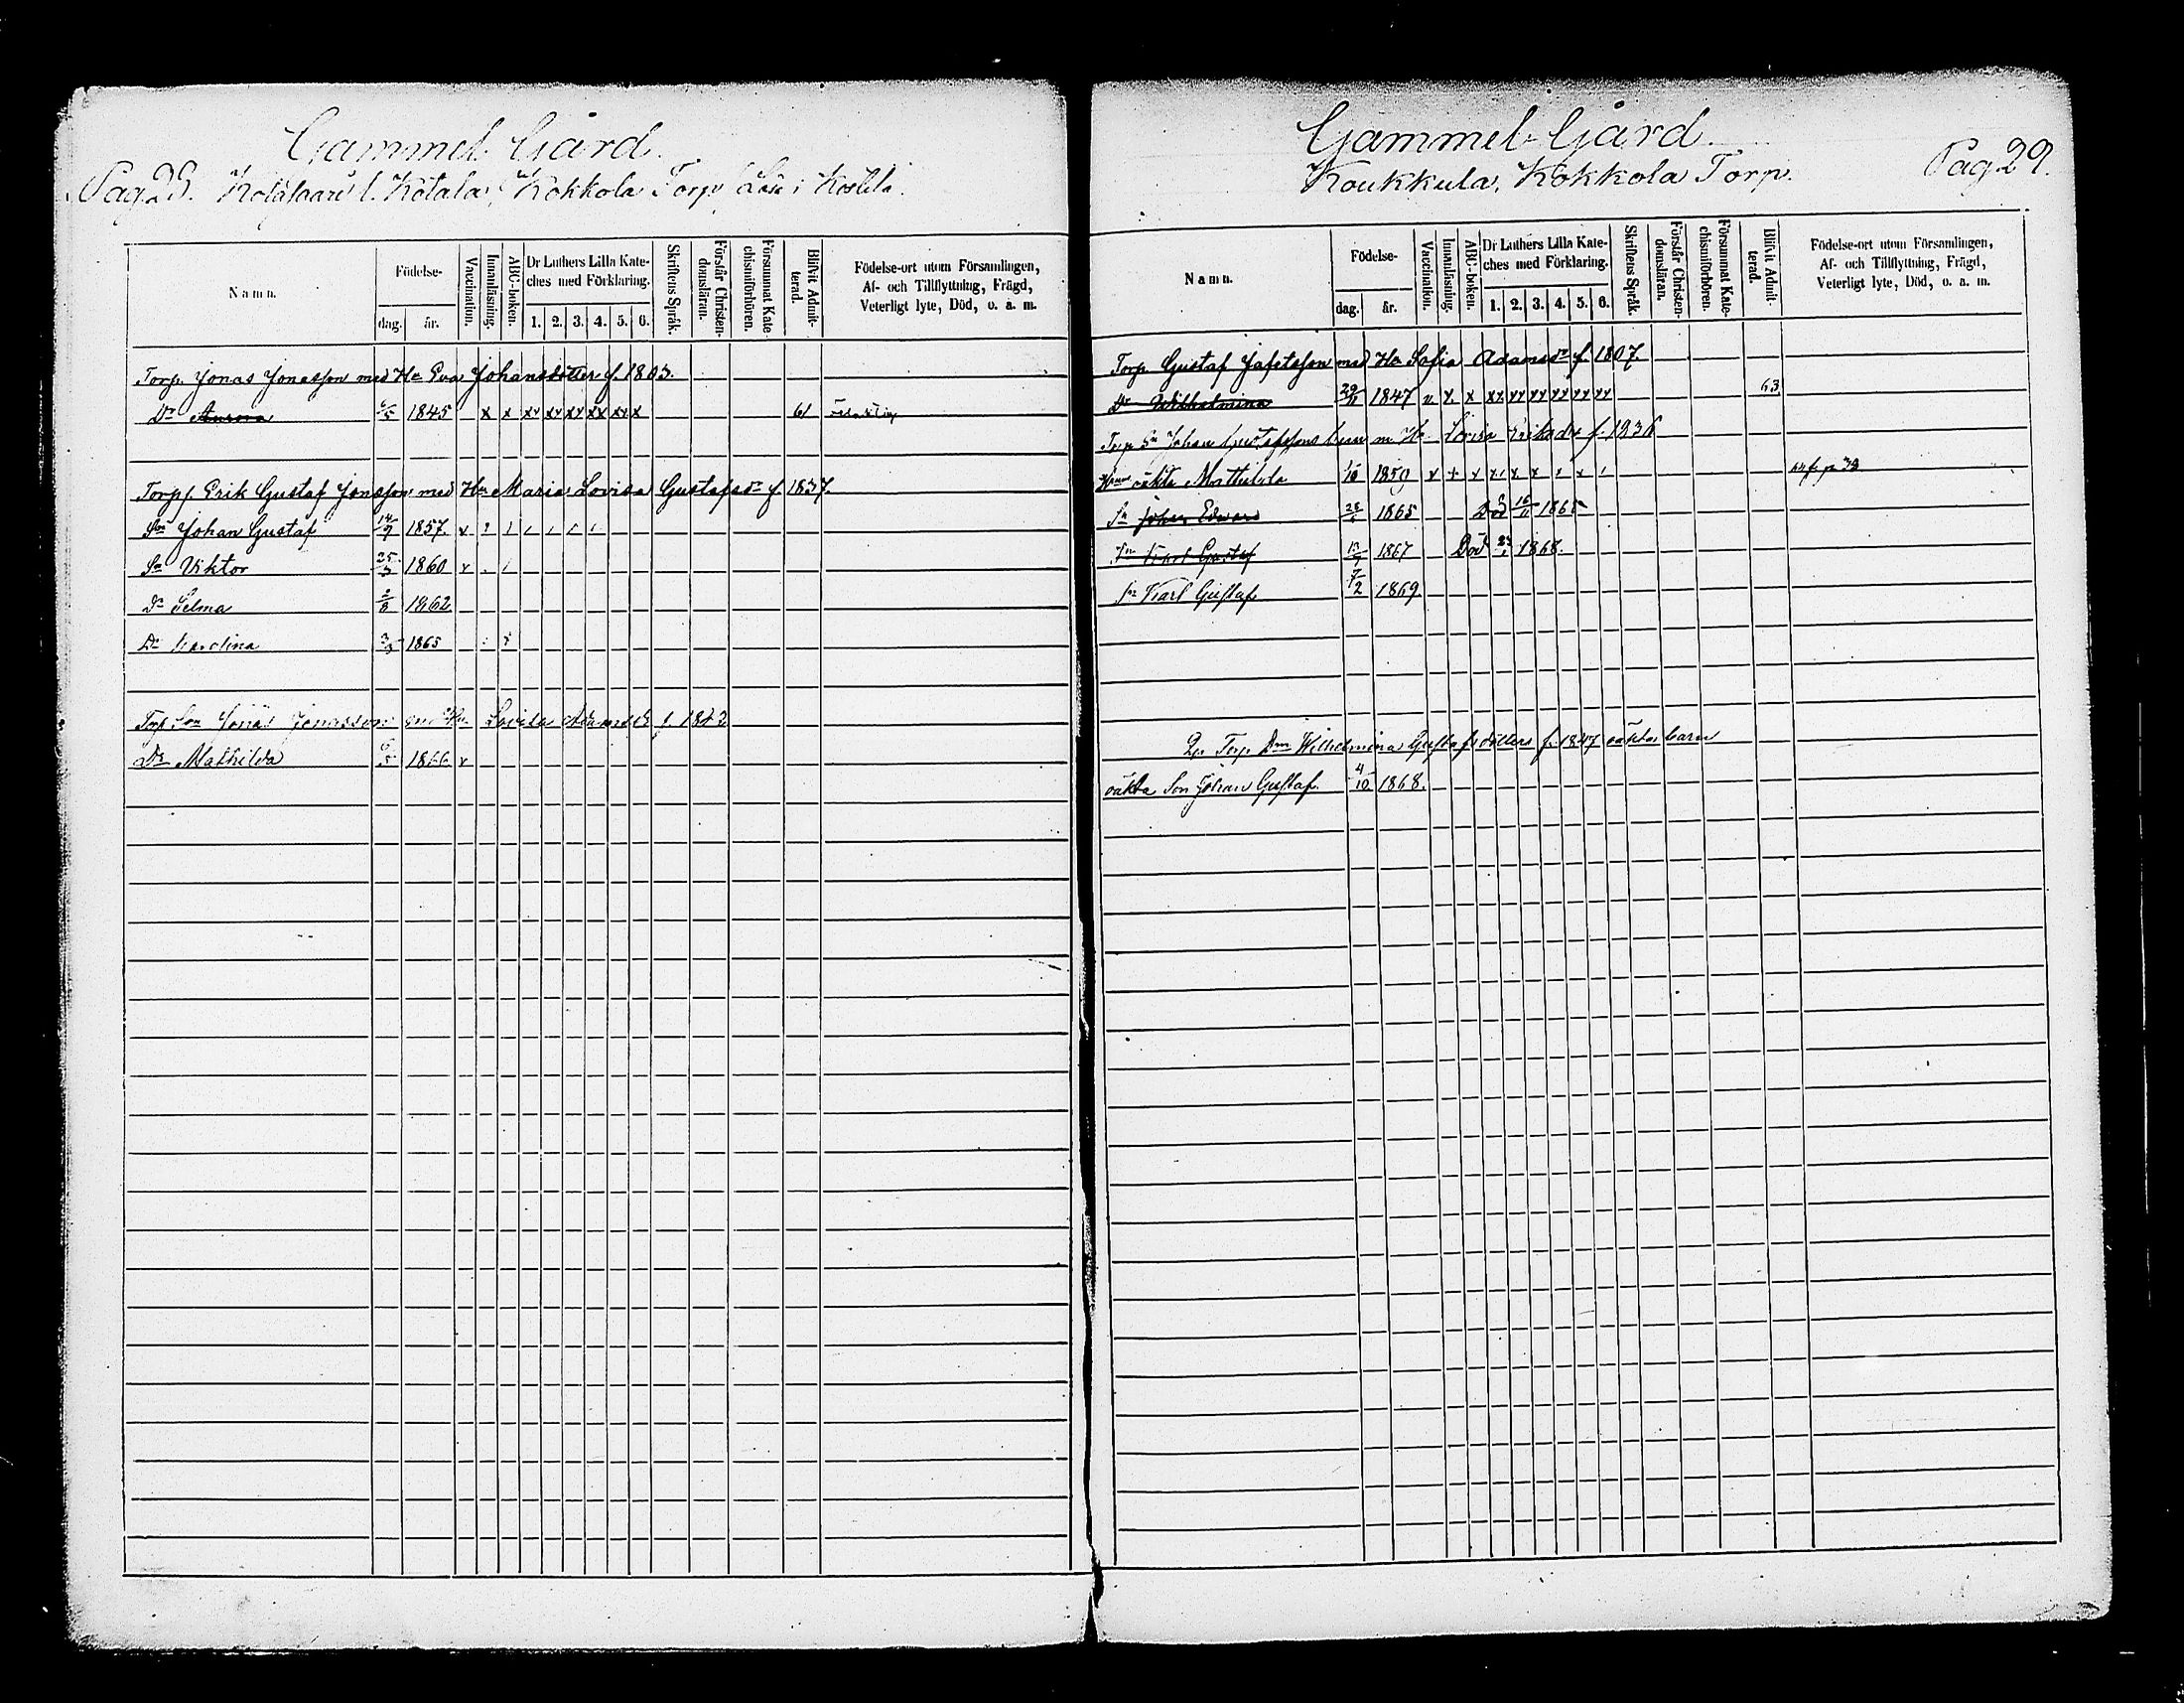 Gammel Gård.
Pag. l. Kotala, Kokkola Torp
Namn.
Födelse-
dag.
år.
Vaccination.
Innanläsning.
ABC-boken.
Dr Luthers Lilla Kate-
ches med Förklaring.
1. 2. 3. 4. 5. 6.
Skriftens Språk.
Förstår Christen-
domsläran.
Försummat Kate-
chismiförhören.
Blifvit Admit-
terad.
Födelse-ort utom Församlingen,
Af- och Tillflyttning, Frägd,
Veterligt lyte, Död, o. a. m.
Torp. Jonas Jonasson med Ha Eva Johansdotter f. 1803.
Dr Aurora 6/5 1845 x x xx xx xx xx xx x 61
Torpf. Erik Gustaf Jonsson med Ha Maria Lovisa Gustafsdr f. 1837.
Sn Johan Gustaf 14/9 1857. v
Sn Viktor 25/3 1860 v
Dr Selma 2/8 1862
Dr Karolina 1865
Torp Son Jonas Jonasson Lovisa Adamsdr f. 1842
Dr Mathilda 6/5 1866 v
Gammel-Gård
Koukkula, Kokkola Torp.
Pag 29.
Namn.
Födelse-
dag.
år.
Vaccination.
Innanläsning.
ABC-boken.
Dr Luthers Lilla Kate-
ches med Förklaring.
1. 2. 3. 4. 5. 6.
Skriftens Språk.
Förstår Christen-
domsläran.
Försummat Kate-
chismiförhören.
Blifvit Admit-
terad.
Födelse-ort utom Församlingen,
Af- och Tillflyttning, Frägd,
Veterligt lyte, Död, o. a. m.
Torp Gustaf Jafetsson med Ha Sofia Adamsdr f. 1807.
Dr Wilhelmina 29/11 1847 v x x xx xx xx xx xx xx 63
Torp Sn Johan Gustafssons barn m. Ha. Lovisa Eriksdr f. 1836
oäkta Mathilda 1859 v x x
Sn Johan Edward 1865 Död 16/11 1865
Sn Karl Gustaf 1867 Död 1868.
Sn Karl Gustaf 7/2 1869
Torp Drn Wilhelmina Gustafsdotters f. 1847 oäkta barn
oäkta Son Johan Gustaf. 4/10 1868.